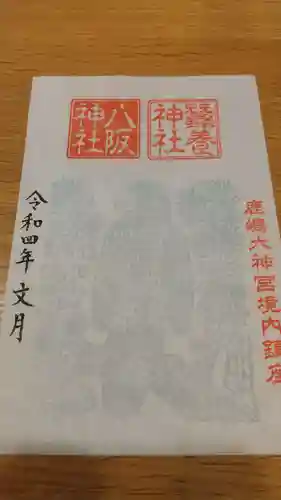 鹿嶋大神宮境内鎮座
蠶養
神社
八阪
神社
令和四年 文月